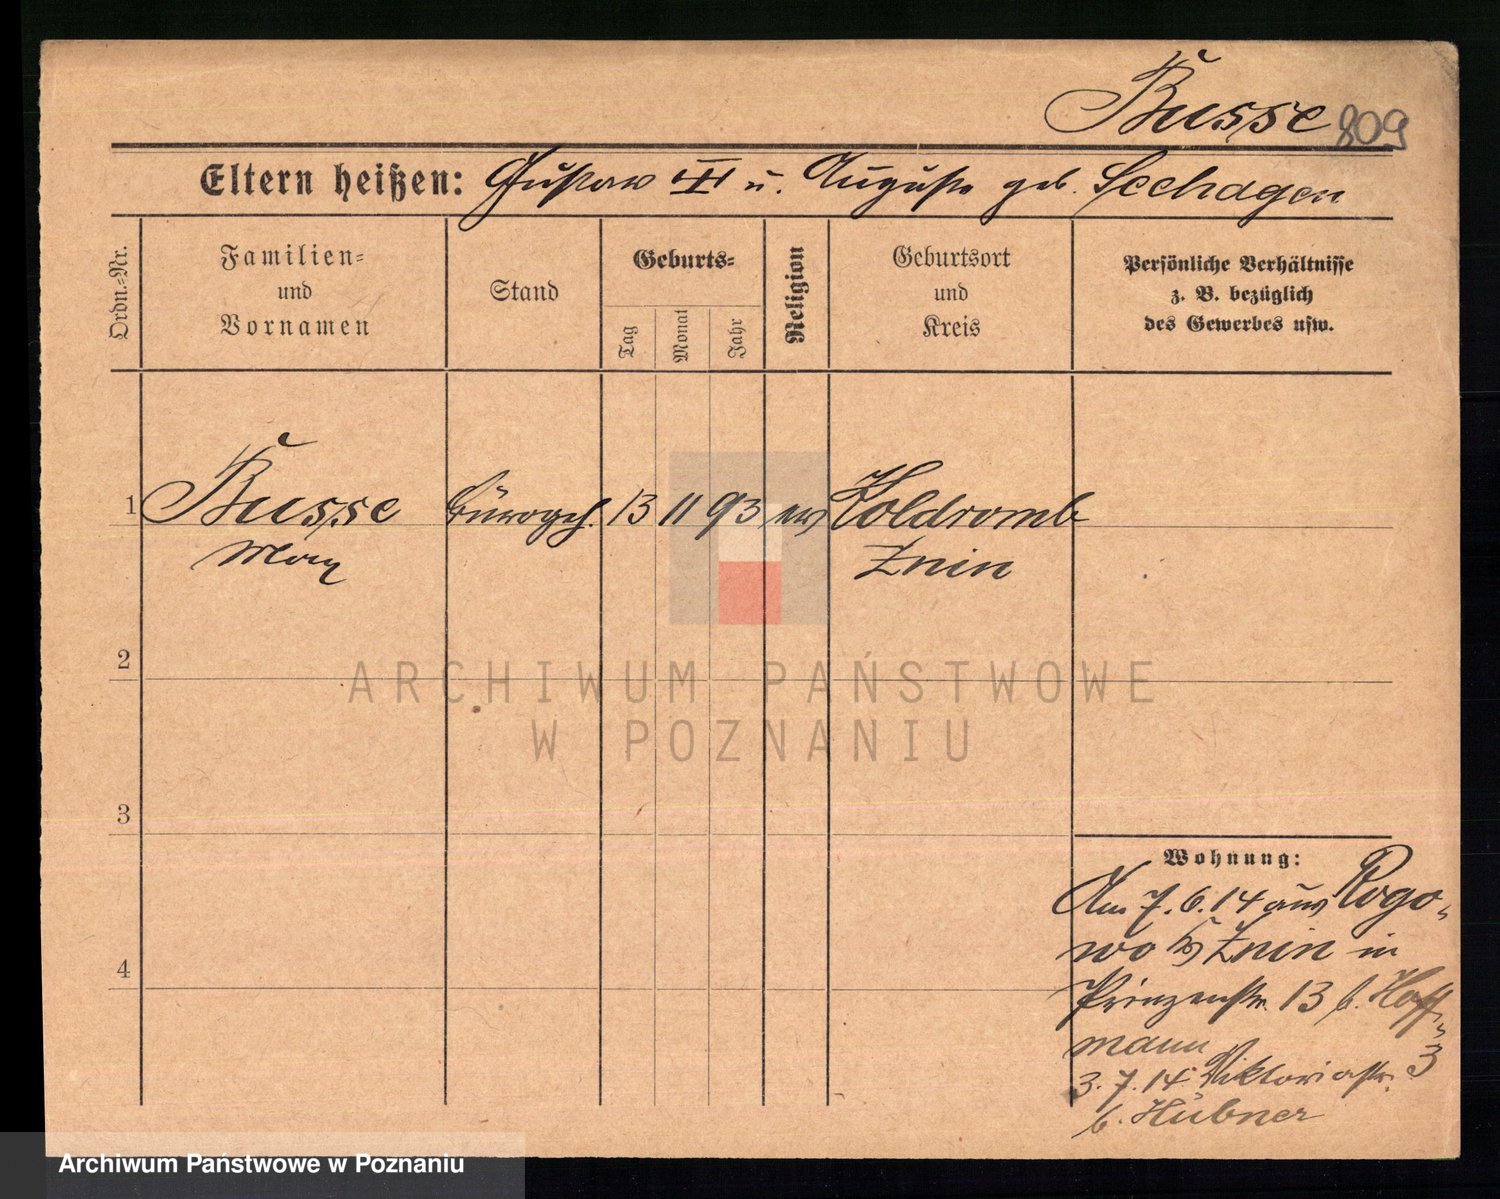 Busse 809
Eltern heißen: Gustav III u. Auguste geb. Seehagen
Ordn.-Nr.
Familien-
und
Vornamen
Stand
Geburts-
Tag
Monat
Jahr
Religion
Geburtsort
und
Kreis
Persönliche Verhältnisse
z. B. bezüglich
des Gewerbes usw.
1 Busse Bürogeh. 13 11 93 ev Koldromb
Max Znin
2
3
4
Wohnung:
Am 7.6.14 aus Rogo-
wo Znin in
Prinzenstr. 13 b. Hoff-
mann
3.7.14 Viktoriastr. 3
b. Hübner
ARCHIWUM PAŃSTWOWE
W POZNANIU
Archiwum Państwowe w Poznaniu